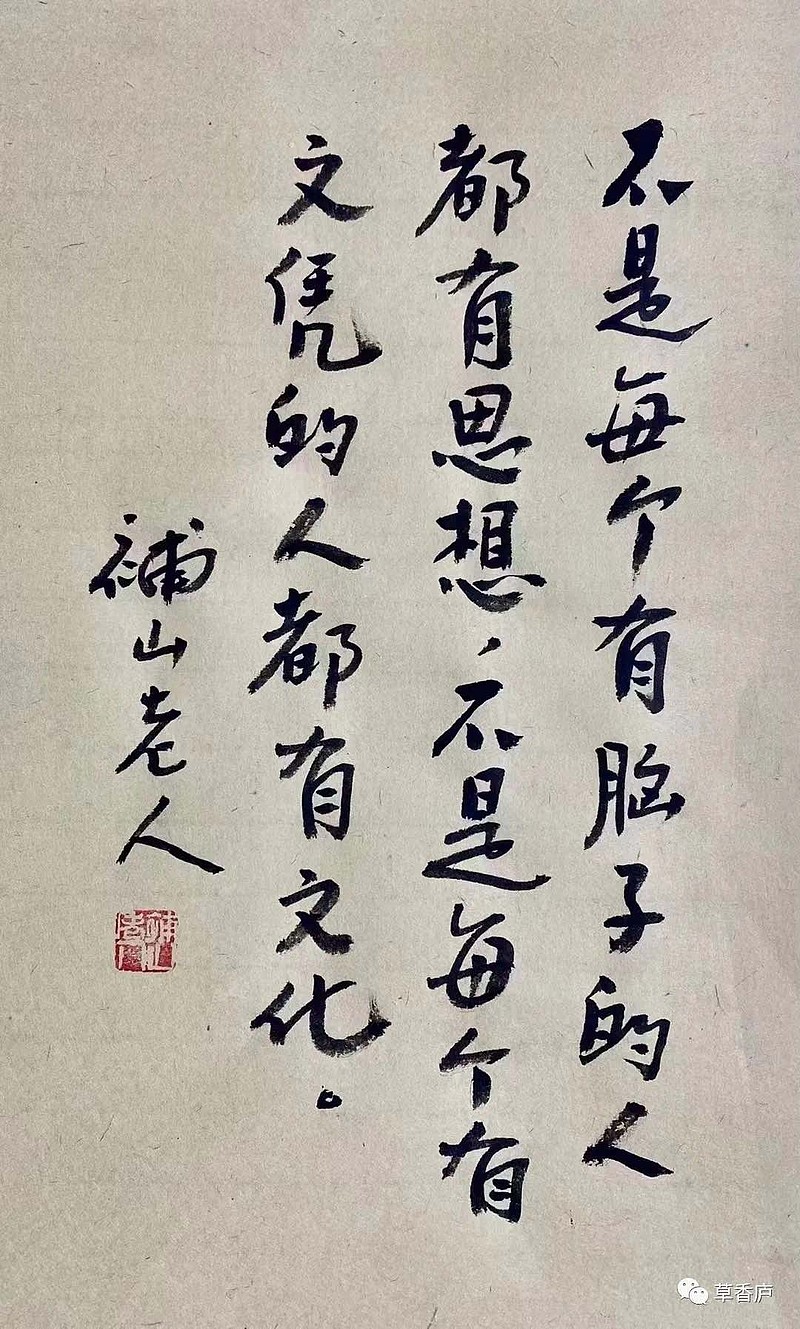 不是每个有脑子的人
都有思想，不是每个有
文凭的人都有文化。
補山老人
草香庐